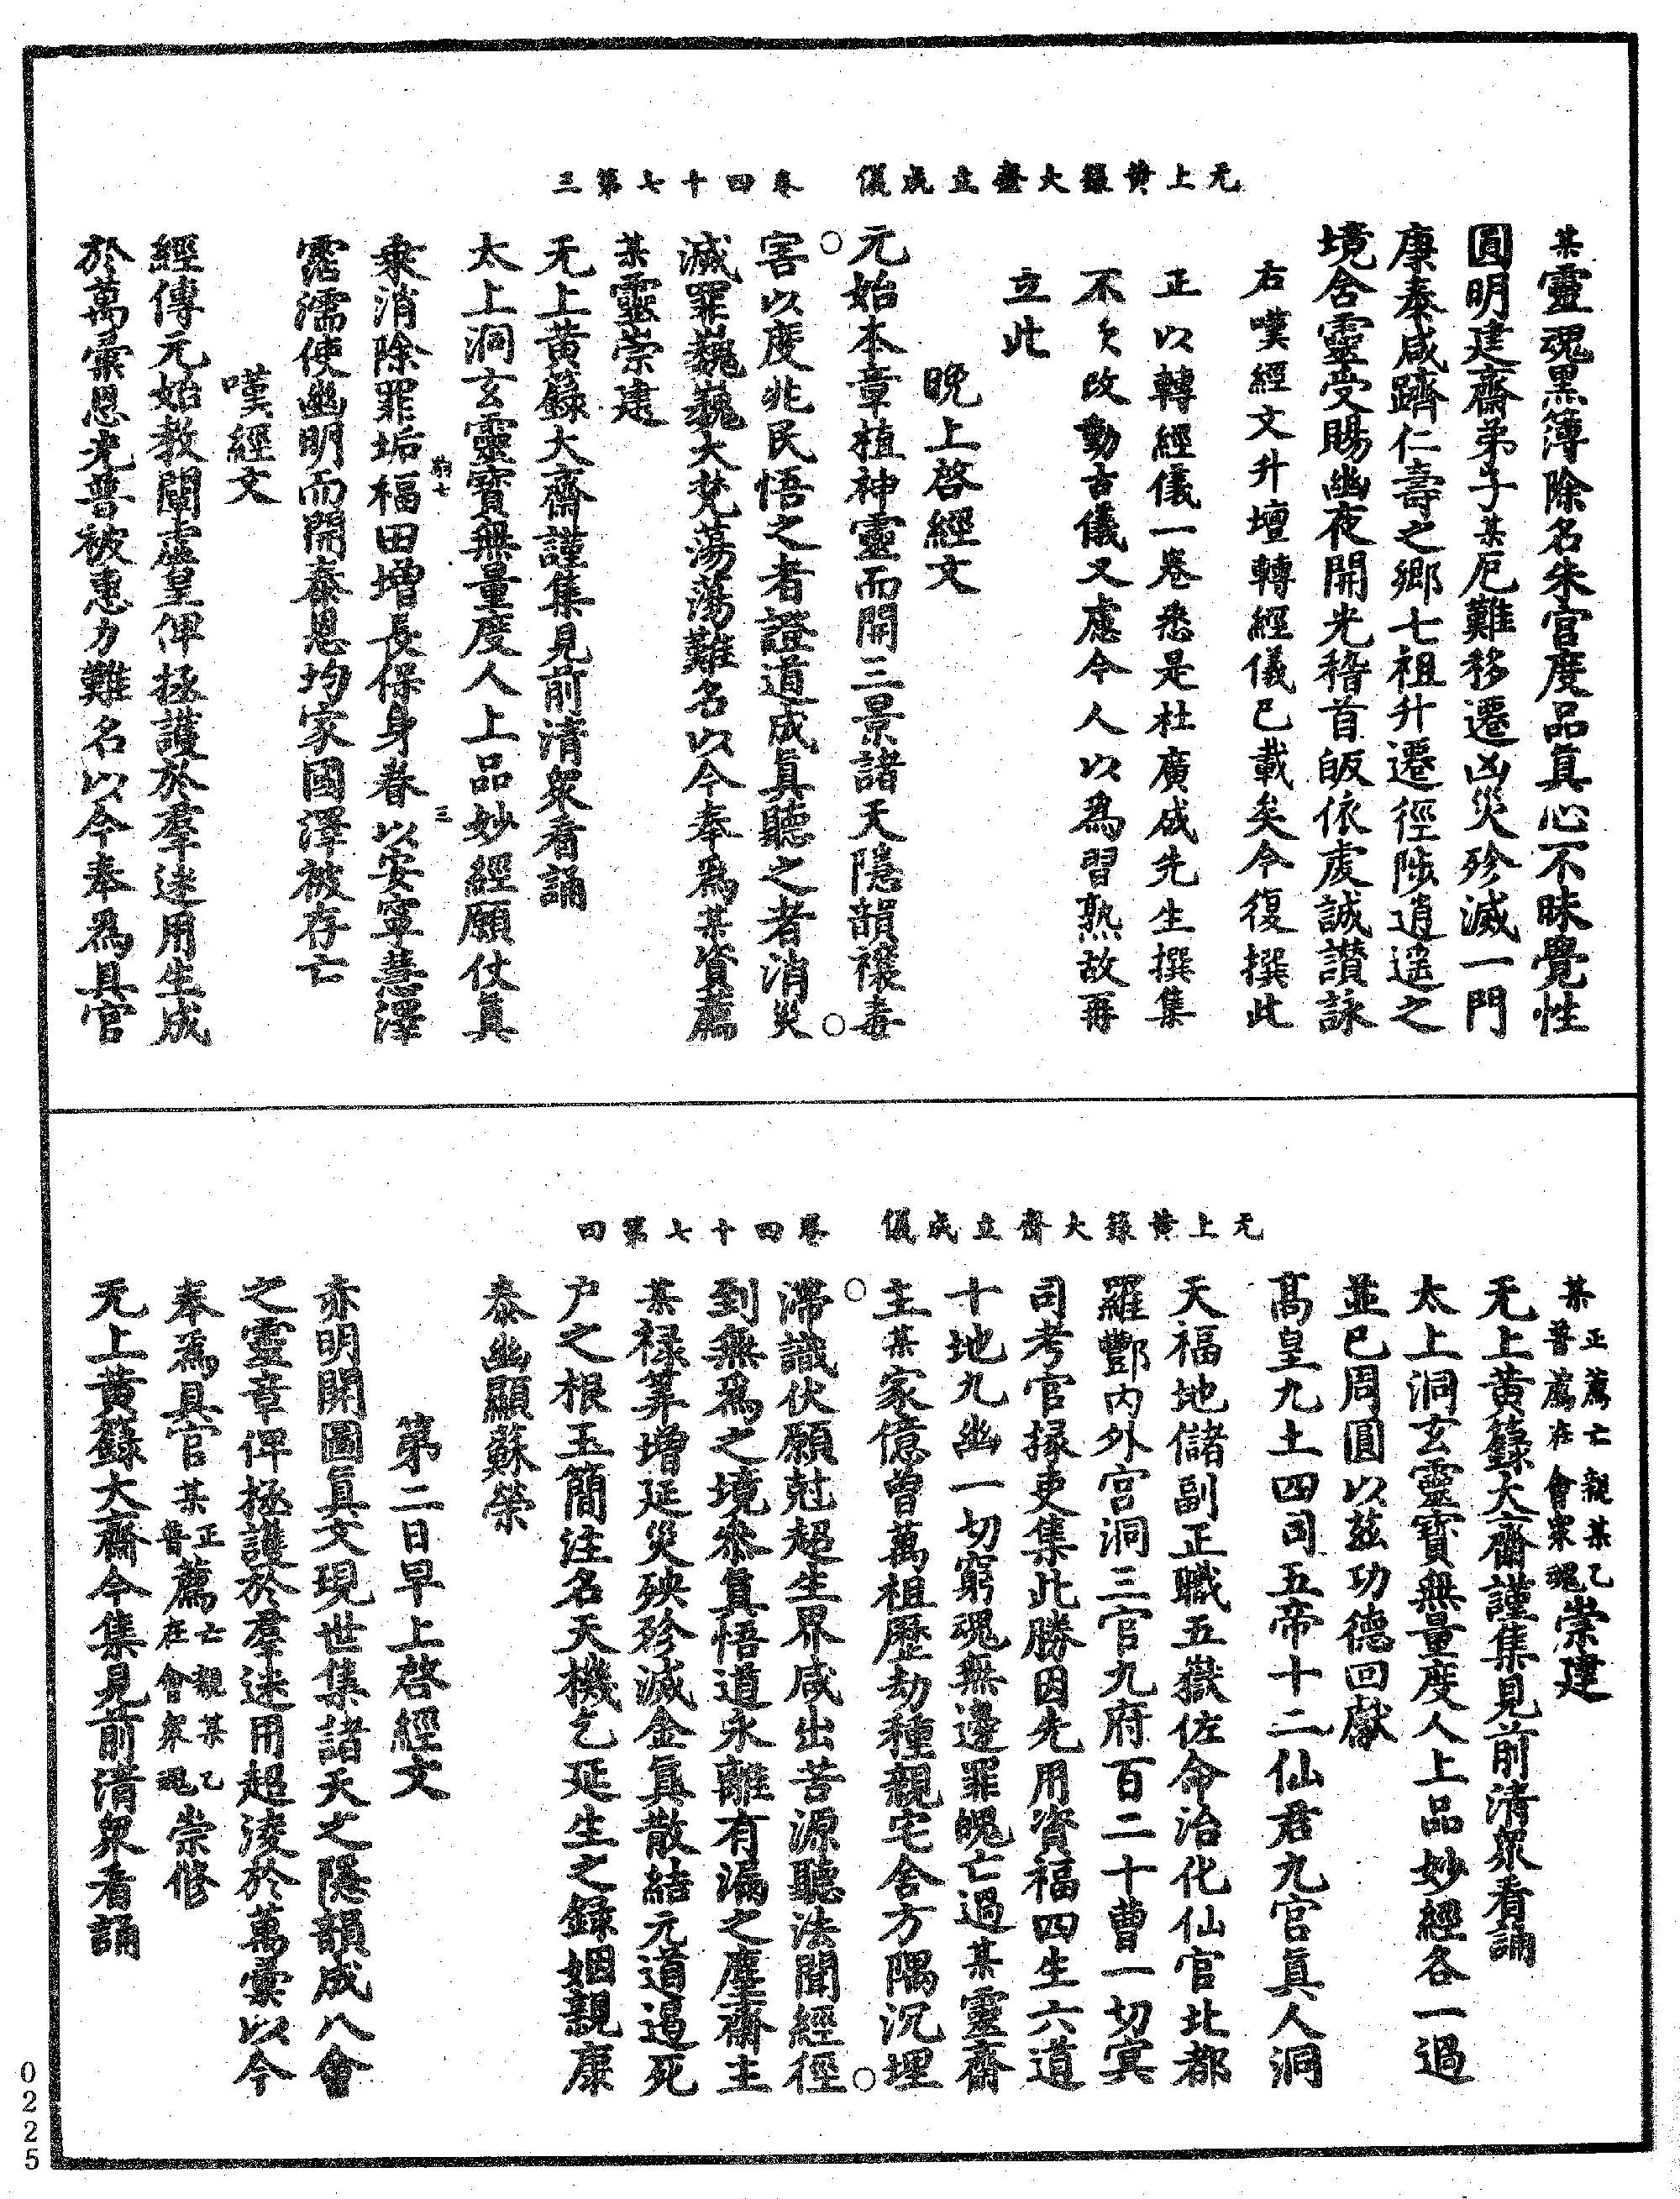 无上黃籙大齋立成儀　卷四十七第三
某靈魂黑簿除名朱宮度品真心不昧覺性
圓明建齋弟子某厄難移遷凶災殄滅一門
康泰咸躋仁壽之鄉七祖升遷徑陟逍遙之
境含靈受賜幽夜開光稽首皈依虔誠讚詠
右嘆經文升壇轉經儀已載矣今復撰此
正以轉經儀一卷悉是杜廣成先生撰集
不欠改動古儀又慮今人以為習熟故再
立此
晚上啓經文
元始本章植神靈而開三景諸天隱韻禳毒
害以度兆民悟之者證道成真聽之者消災
滅罪巍巍大梵蕩蕩難名以今奉為某資薦
某靈崇建
无上黃籙大齋謹集見前清衆看誦
太上洞玄靈寶無量度人上品妙經願仗真
乘消除罪垢福田增長保身眷以安寧慧澤
霑濡使幽明而開泰恩均家國澤被存亡
嘆經文
經傳元始教闡虛皇俾拯護於羣迷用生成
於萬彙恩光普被惠力難名以今奉為具官
三
无上黃籙大齋立成儀　卷四十七第四
某正薦亡親某乙普薦在會衆魂崇建
无上黃籙大齋謹集見前清衆看誦
太上洞玄靈寶無量度人上品妙經各一過
並已周圓以茲功德回獻
高皇九土四司五帝十二仙君九官真人洞
天福地儲副正職五嶽佐命治化仙官北都
羅酆內外宮洞三官九府百二十曹一切冥
司考官掾吏集此勝因先用資福四生六道
十地九幽一切窮魂無邊罪魄亡過某靈齋
主某家億曾萬祖歷劫種親宅舍方隅沉埋
滯識伏願尅超生界咸出苦源聽法聞經徑
到無為之境參真悟道永離有漏之塵齋主
某祿筭增延災殃殄滅金真散結元道遏死
戶之根玉簡注名天機乞延生之錄姻親康
泰幽顯蘇榮
第二日早上啓經文
赤明開圖真文現世集諸天之隱韻成八會
之靈章俾拯護於羣迷用超淩於萬彙以今
奉為具官某正薦亡親某乙普薦在會衆魂崇修
无上黃籙大齋今集見前清衆看誦
0225